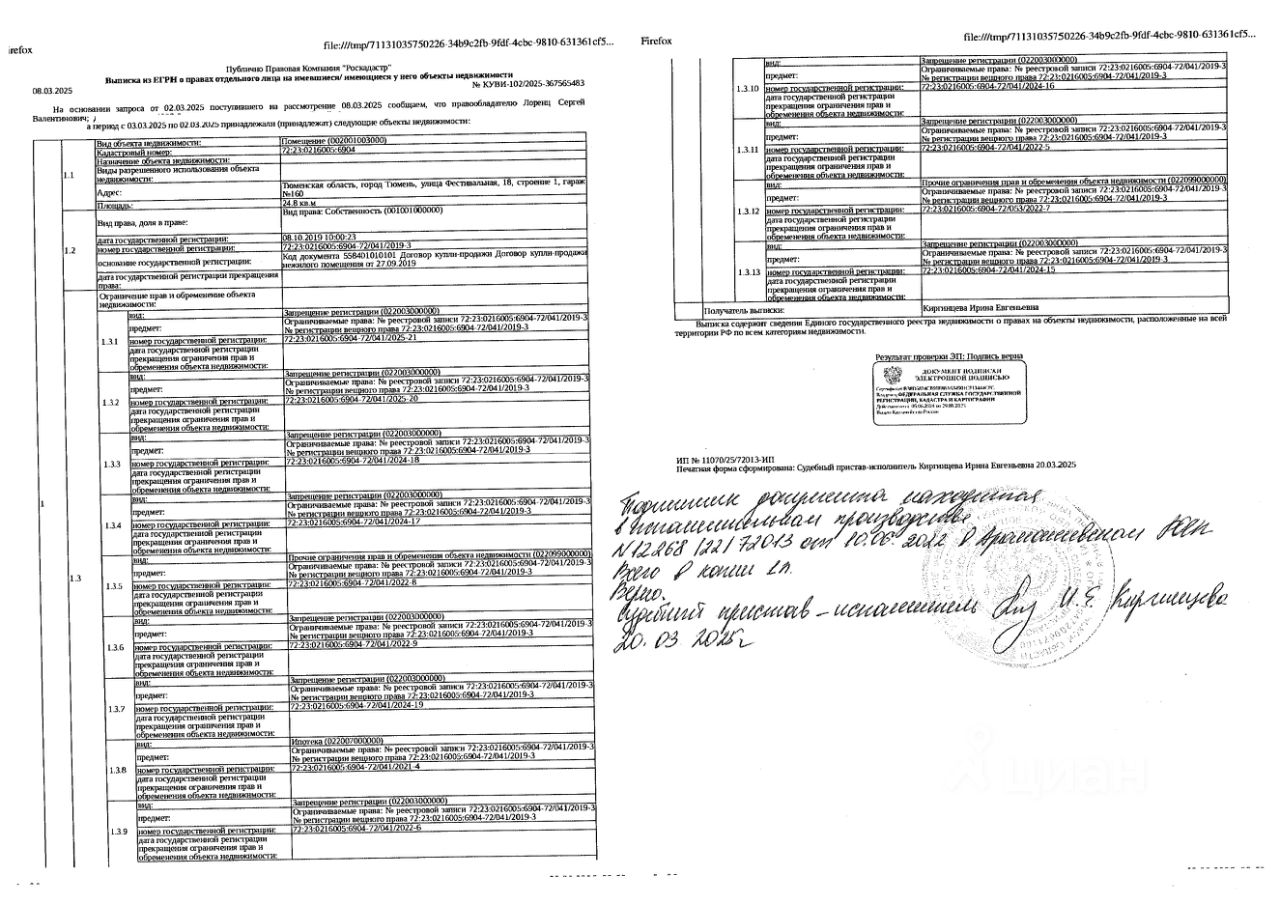 irefox
file:///tmp/71131035750226-34b9c2fb-9fdf-4cbc-9810-631361cf5...
Публично Правовая Компания "Роскадастр"
Выписка из ЕГРН о правах отдельного лица на имевшиеся/ имеющиеся у него объекты недвижимости
08.03.2025
№ КУВИ-102/2025-367565483
На основании запроса от 02.03.2025 поступившего на рассмотрение 08.03.2025 сообщаем, что правообладателю Лоренц Сергей
Валентинович;
а период с 03.03.2025 по 02.03.2025 принадлежали (принадлежат) следующие объекты недвижимости:
1
1.1
Вид объекта недвижимости: Помещение (002001003000)
Кадастровый номер: 72:23:0216005:6904
Назначение объекта недвижимости:
Виды разрешенного использования объекта
недвижимости:
Адрес: Тюменская область, город Тюмень, улица Фестивальная, 18, строение 1, гараж
№160
Площадь: 24.8 кв.м
1.2
Вид права, доля в праве: Вид права: Собственность (001001000000)
дата государственной регистрации: 08.10.2019 10:00:23
номер государственной регистрации: 72:23:0216005:6904-72/041/2019-3
основание государственной регистрации: Код документа 558401010101 Договор купли-продажи Договор купли-продажи
нежилого помещения от 27.09.2019
дата государственной регистрации прекращения
права:
1.3
Ограничение прав и обременение объекта
недвижимости:
1.3.1
вид: Запрещение регистрации (022003000000)
предмет: Ограничиваемые права: № реестровой записи 72:23:0216005:6904-72/041/2019-3
№ регистрации вещного права 72:23:0216005:6904-72/041/2019-3
номер государственной регистрации: 72:23:0216005:6904-72/041/2025-21
дата государственной регистрации
прекращения ограничения прав и
обременения объекта недвижимости:
1.3.2
вид: Запрещение регистрации (022003000000)
предмет: Ограничиваемые права: № реестровой записи 72:23:0216005:6904-72/041/2019-3
№ регистрации вещного права 72:23:0216005:6904-72/041/2019-3
номер государственной регистрации: 72:23:0216005:6904-72/041/2025-20
дата государственной регистрации
прекращения ограничения прав и
обременения объекта недвижимости:
1.3.3
вид: Запрещение регистрации (022003000000)
предмет: Ограничиваемые права: № реестровой записи 72:23:0216005:6904-72/041/2019-3
№ регистрации вещного права 72:23:0216005:6904-72/041/2019-3
номер государственной регистрации: 72:23:0216005:6904-72/041/2024-18
дата государственной регистрации
прекращения ограничения прав и
обременения объекта недвижимости:
1.3.4
вид: Запрещение регистрации (022003000000)
предмет: Ограничиваемые права: № реестровой записи 72:23:0216005:6904-72/041/2019-3
№ регистрации вещного права 72:23:0216005:6904-72/041/2019-3
номер государственной регистрации: 72:23:0216005:6904-72/041/2024-17
дата государственной регистрации
прекращения ограничения прав и
обременения объекта недвижимости:
1.3.5
вид: Прочие ограничения прав и обременения объекта недвижимости (022099000000)
предмет: Ограничиваемые права: № реестровой записи 72:23:0216005:6904-72/041/2019-3
№ регистрации вещного права 72:23:0216005:6904-72/041/2019-3
номер государственной регистрации: 72:23:0216005:6904-72/041/2022-8
дата государственной регистрации
прекращения ограничения прав и
обременения объекта недвижимости:
1.3.6
вид: Запрещение регистрации (022003000000)
предмет: Ограничиваемые права: № реестровой записи 72:23:0216005:6904-72/041/2019-3
№ регистрации вещного права 72:23:0216005:6904-72/041/2019-3
номер государственной регистрации: 72:23:0216005:6904-72/041/2022-9
дата государственной регистрации
прекращения ограничения прав и
обременения объекта недвижимости:
1.3.7
вид: Запрещение регистрации (022003000000)
предмет: Ограничиваемые права: № реестровой записи 72:23:0216005:6904-72/041/2019-3
№ регистрации вещного права 72:23:0216005:6904-72/041/2019-3
номер государственной регистрации: 72:23:0216005:6904-72/041/2024-19
дата государственной регистрации
прекращения ограничения прав и
обременения объекта недвижимости:
1.3.8
вид: Ипотека (022007000000)
предмет: Ограничиваемые права: № реестровой записи 72:23:0216005:6904-72/041/2019-3
№ регистрации вещного права 72:23:0216005:6904-72/041/2019-3
номер государственной регистрации: 72:23:0216005:6904-72/041/2021-4
дата государственной регистрации
прекращения ограничения прав и
обременения объекта недвижимости:
1.3.9
вид: Запрещение регистрации (022003000000)
предмет: Ограничиваемые права: № реестровой записи 72:23:0216005:6904-72/041/2019-3
№ регистрации вещного права 72:23:0216005:6904-72/041/2019-3
номер государственной регистрации: 72:23:0216005:6904-72/041/2022-6
дата государственной регистрации
прекращения ограничения прав и
обременения объекта недвижимости:
Firefox
file:///tmp/71131035750226-34b9c2fb-9fdf-4cbc-9810-631361cf5...
1.3.10
вид: Запрещение регистрации (022003000000)
предмет: Ограничиваемые права: № реестровой записи 72:23:0216005:6904-72/041/2019-3
№ регистрации вещного права 72:23:0216005:6904-72/041/2019-3
номер государственной регистрации: 72:23:0216005:6904-72/041/2024-16
дата государственной регистрации
прекращения ограничения прав и
обременения объекта недвижимости:
1.3.11
вид: Запрещение регистрации (022003000000)
предмет: Ограничиваемые права: № реестровой записи 72:23:0216005:6904-72/041/2019-3
№ регистрации вещного права 72:23:0216005:6904-72/041/2019-3
номер государственной регистрации: 72:23:0216005:6904-72/041/2022-5
дата государственной регистрации
прекращения ограничения прав и
обременения объекта недвижимости:
1.3.12
вид: Прочие ограничения прав и обременения объекта недвижимости (022099000000)
предмет: Ограничиваемые права: № реестровой записи 72:23:0216005:6904-72/041/2019-3
№ регистрации вещного права 72:23:0216005:6904-72/041/2019-3
номер государственной регистрации: 72:23:0216005:6904-72/053/2022-7
дата государственной регистрации
прекращения ограничения прав и
обременения объекта недвижимости:
1.3.13
вид: Запрещение регистрации (022003000000)
предмет: Ограничиваемые права: № реестровой записи 72:23:0216005:6904-72/041/2019-3
№ регистрации вещного права 72:23:0216005:6904-72/041/2019-3
номер государственной регистрации: 72:23:0216005:6904-72/041/2024-15
дата государственной регистрации
прекращения ограничения прав и
обременения объекта недвижимости:
Получатель выписки: Киргинцева Ирина Евгеньевна
Выписка содержит сведения Единого государственного реестра недвижимости о правах на объекты недвижимости, расположенные на всей
территории РФ по всем категориям недвижимости.
Результат проверки ЭП: Подпись верна
ДОКУМЕНТ ПОДПИСАН
ЭЛЕКТРОННОЙ ПОДПИСЬЮ
ФЕДЕРАЛЬНАЯ СЛУЖБА ГОСУДАРСТВЕННОЙ
РЕГИСТРАЦИИ, КАДАСТРА И КАРТОГРАФИИ
ИП № 11070/25/72013-ИП
Печатная форма сформирована: Судебный пристав-исполнитель Киргинцева Ирина Евгеньевна 20.03.2025
Подлинник документа находится
в исполнительном производстве
N12268/22/72013 от 10.06.2022 в
Всего в копии 2л.
Верно.
Судебный пристав-исполнитель И.Е. Киргинцева
20.03.2025г
циан